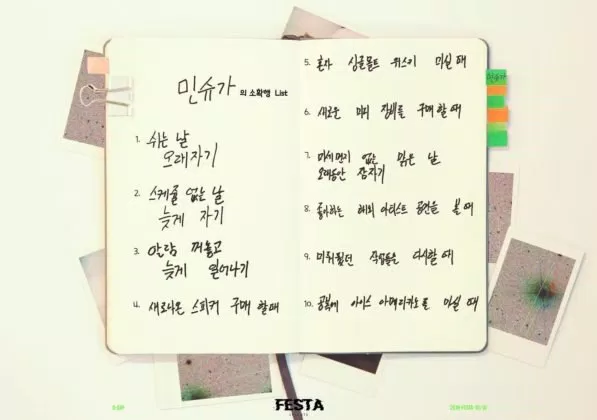 민슈가 의 소확행 List
1. 쉬는 날
오래자기
2. 스케쥴 없는 날
늦게 자기
3. 알람 꺼놓고
늦게 일어나기
4. 새로나온 스피커 구매 할 때
5. 혼자 싱글몰트 위스키 마실 때
6. 새로운 미디 장비를 구매 할 때
7. 미세먼지 없는 맑은 날
오래동안 잠자기
8. 좋아하는 해외 아티스트 공연을 볼 때
9. 미뤄뒀던 작업들을 다시할 때
10. 공복에 아이스 아메리카노를 마실 때
민슈가
FESTA